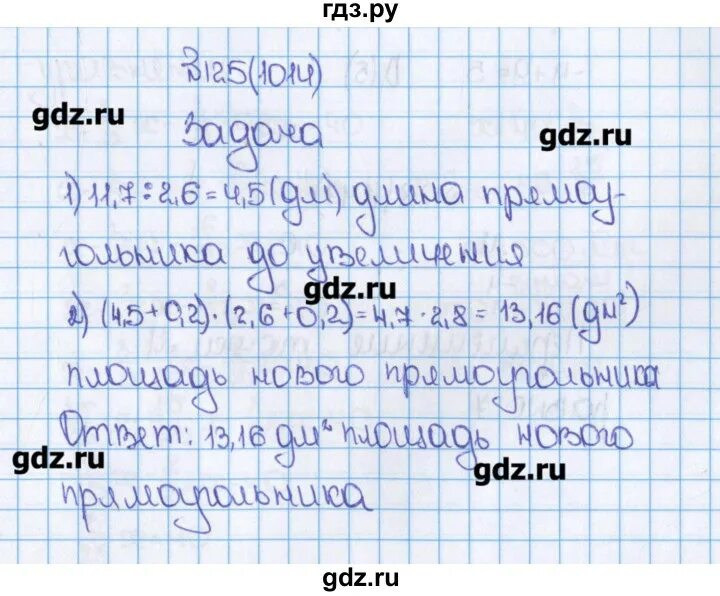 гдз.ру
В125(1014)
gdz.ru
Задача
gdz.ru
1) 11,7 : 2,6 = 4,5 (дм) длина прямоу-
гольника до увеличения
gdz.ru
2) (4,5 + 0,2) · (2,6 + 0,2) = 4,7 · 2,8 = 13,16 (дм²)
площадь нового прямоугольника
Ответ: 13,16 дм² площадь нового
gdz.ru
gdz.ru
прямоугольника
gdz.ru